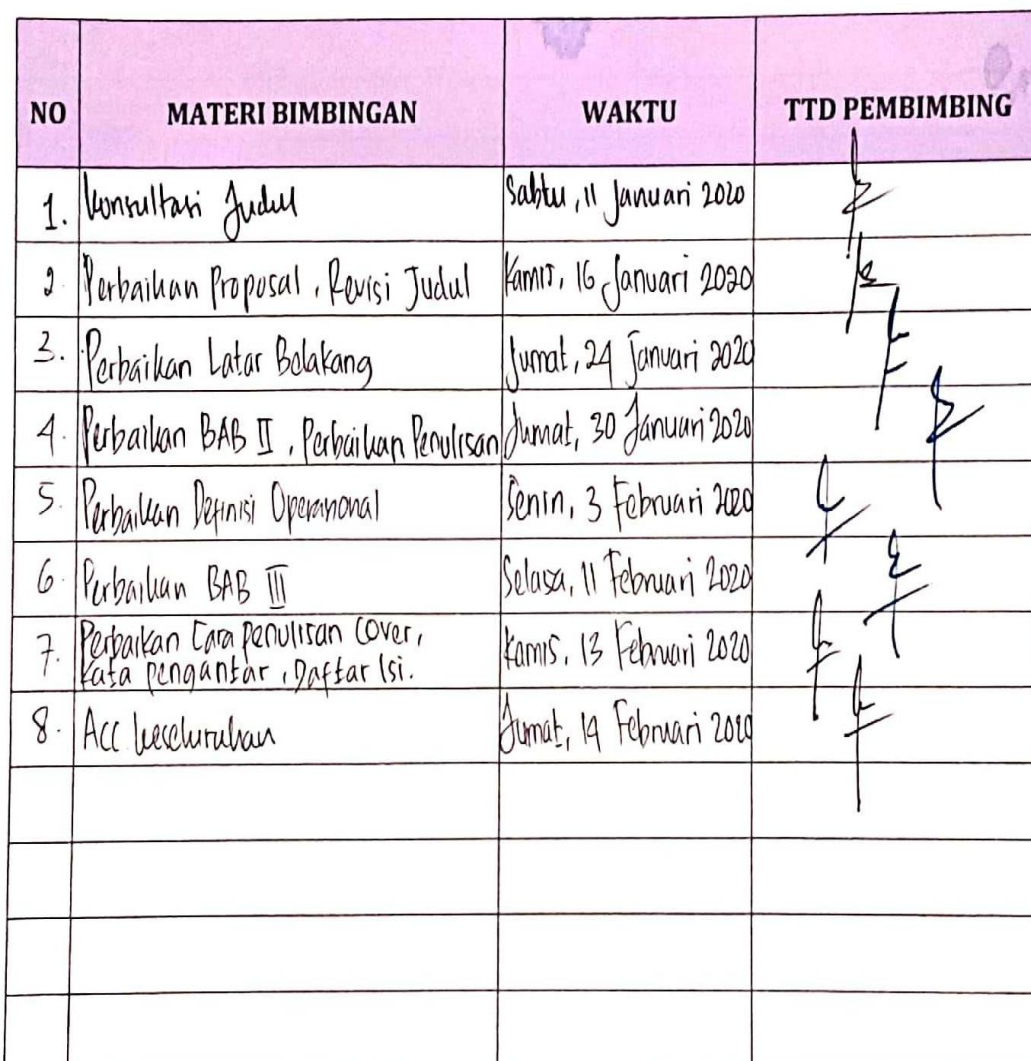 NO MATERI BIMBINGAN WAKTU TTD PEMBIMBING
1. Konsultasi Judul Sabtu, 11 Januari 2020
2. Perbaikan Proposal, Revisi Judul Kamis, 16 Januari 2020
3. Perbaikan Latar Belakang Jumat, 24 Januari 2020
4. Perbaikan BAB II, Perbaikan Penulisan Jumat, 30 Januari 2020
5. Perbaikan Definisi Operasional Senin, 3 Februari 2020
6. Perbaikan BAB III Selasa, 11 Februari 2020
7. Perbaikan Cara penulisan cover,
Kata pengantar, Daftar Isi. Kamis, 13 Februari 2020
8. Acc keseluruhan Jumat, 14 Februari 2020